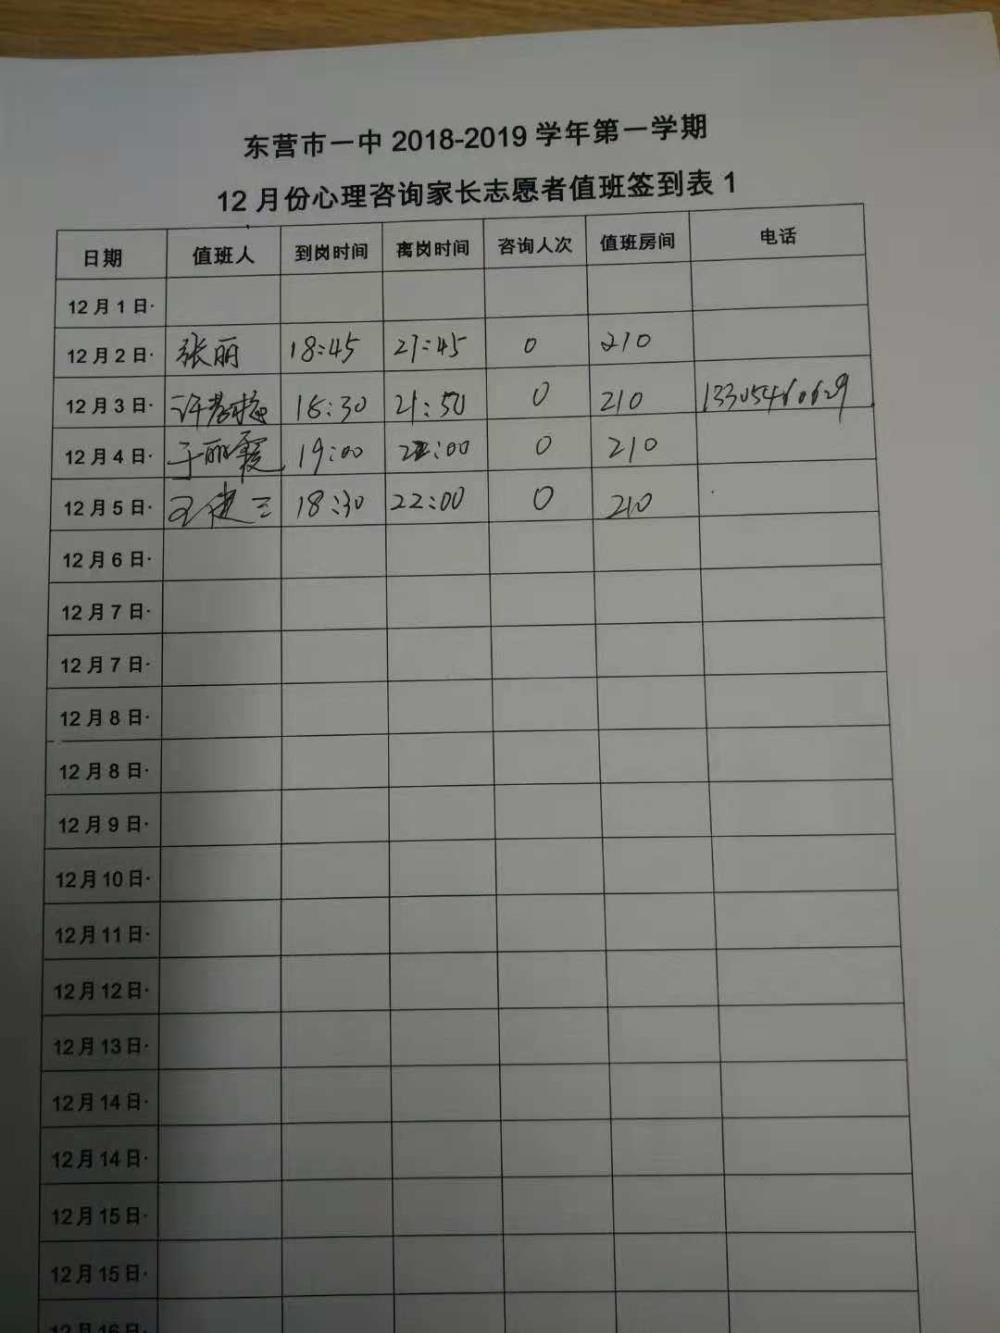 东营市一中 2018-2019 学年第一学期
12 月份心理咨询家长志愿者值班签到表 1
日期 值班人 到岗时间 离岗时间 咨询人次 值班房间 电话
12 月 1 日·
12 月 2 日· 张丽 18:45 21:45 0 210
12 月 3 日· 18:30 21:50 0 210 13305460629
12 月 4 日· 于丽霞 19:00 22:00 0 210
12 月 5 日· 王建三 18:30 22:00 0 210
12 月 6 日·
12 月 7 日·
12 月 7 日·
12 月 8 日·
12 月 8 日·
12 月 9 日·
12 月 10 日·
12 月 11 日·
12 月 12 日·
12 月 13 日·
12 月 14 日·
12 月 14 日·
12 月 15 日·
12 月 15 日·
12 月 16 日·